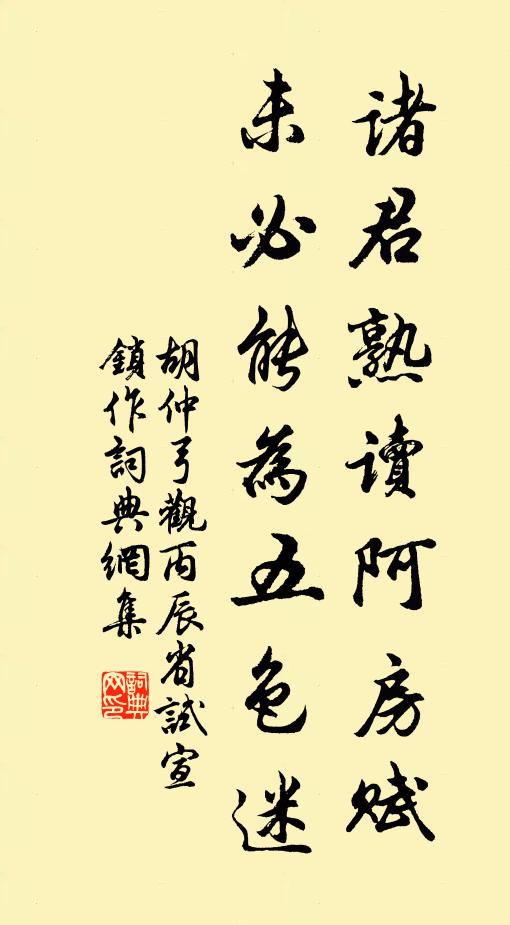 諸君熟讀阿房賦
未必能為五色迷
胡仲弓觀丙辰省試宣
鎖作詞典網集
詞典
网印